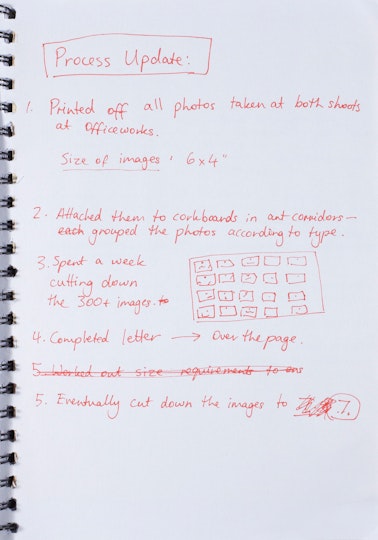 Process Update:
1. Printed off all photos taken at both shoots
at Officeworks.
Size of images : 6x4"
2. Attached them to corkboards in ant corridors —
each grouped the photos according to type.
3. Spent a week
cutting down
the 300+ images. to
4. Completed letter → Over the page.
5. Worked out size requirements to ens
5. Eventually cut down the images to 7.